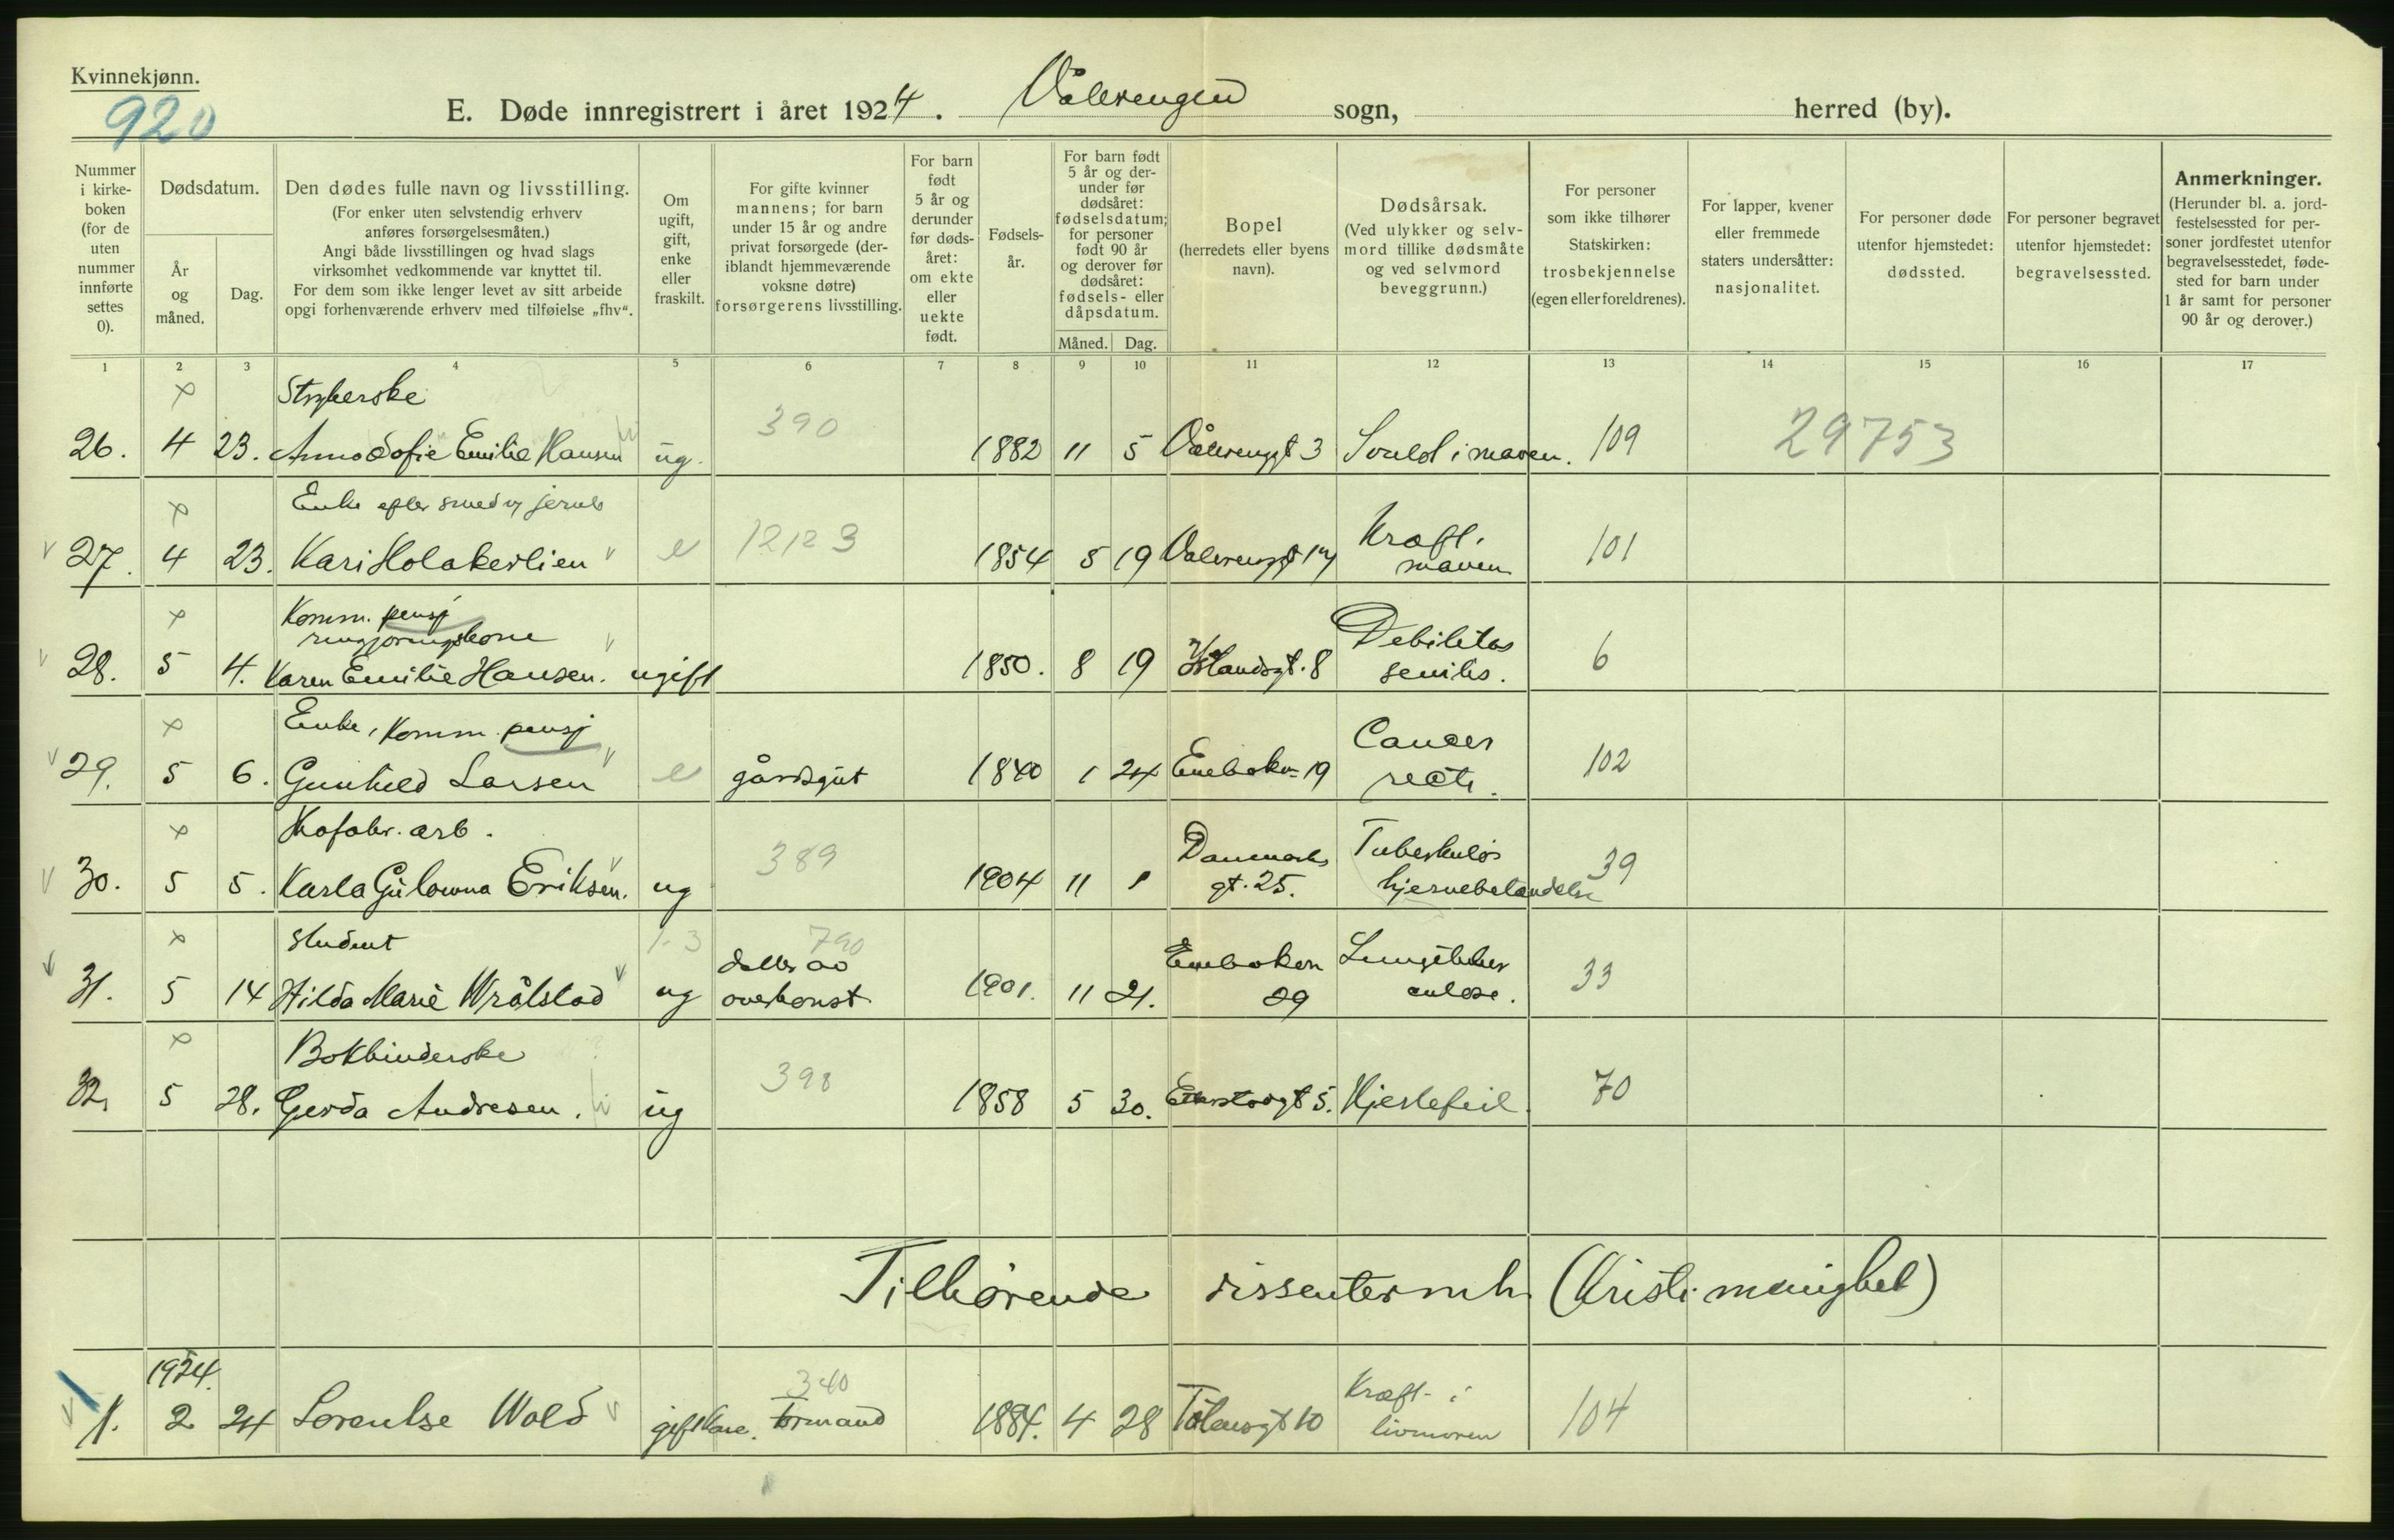 Kvinnekjønn.
920
E. Døde innregistrert i året 1924. Vålerengen sogn, herred (by).
Nummer i kirke- boken (for de uten nummer innførte settes 0).
Dødsdatum.
År og måned.
Dag.
Den dødes fulle navn og livsstilling.
(For enker uten selvstendig erhverv anføres forsørgelsesmåten.)
Angi både livsstillingen og hvad slags virksomhet vedkommende var knyttet til.
For dem som ikke lenger levet av sitt arbeide opgi forhenværende erhverv med tilføielse „fhv“.
Om ugift, gift, enke eller fraskilt.
For gifte kvinner mannens; for barn under 15 år og andre privat forsørgede (der- iblandt hjemmeværende voksne døtre) forsørgerens livsstilling.
For barn født 5 år og derunder før døds- året: om ekte eller uekte født.
Fødsels- år.
For barn født 5 år og der- under før dødsåret: fødselsdatum; for personer født 90 år og derover før dødsåret: fødsels- eller dåpsdatum.
Måned. Dag.
Bopel (herredets eller byens navn).
Dødsårsak. (Ved ulykker og selv- mord tillike dødsmåte og ved selvmord beveggrunn.)
For personer som ikke tilhører Statskirken: trosbekjennelse (egen eller foreldrenes).
For lapper, kvener eller fremmede staters undersåtter: nasjonalitet.
For personer døde utenfor hjemstedet: dødssted.
For personer begravet utenfor hjemstedet: begravelsessted.
Anmerkninger. (Herunder bl. a. jord- festelsessted for per- soner jordfestet utenfor begravelsesstedet, føde- sted for barn under 1 år samt for personer 90 år og derover.)
1 2 3 4 5 6 7 8 9 10 11 12 13 14 15 16 17
Strykerske
26. 4 23. Anna Sofie Emilie Hansen ug. 390 1882 11 5 Vålerenggt 3 i maven. 109 29753
Enke efter smed
27. 4 23. Kari Holakerlien e 12123 1854 5 19 Vålerenggt 17 Kræft i maven 101
Komm. pensj
rengjøringskone
28. 5 4. Karen Emilie Hansen. ugift 1850. 8 19 Islandsgt. 8 Debilitas senilis. 6
Enke, Komm. pensj
29. 5 6. Gunhild Larsen e gårdsgut 1840 1 24 Enebakv 19 Cancer recti. 102
arb.
30. 5 5. Karla Gulowna Eriksen. ug 389 1904 11 1 Danmarks gt. 25. Tuberkuløs hjernebetændelse 39
student 1-3 790
31. 5 14 Hilda Marie Wrålstad ug datter av overkonst 1901. 11 21. Enebakvn 29 Lungetuberculose. 33
Bokbinderske
32. 5 28. Gerda Andresen. ug 398 1858 5 30. 5. Hjertefeil. 70
Tilhørende dissentermh (Kristi menighet)
1924. 340
1. 2 24 Lorentse Wold gift Kone. formand 1884. 4 28 Tølensgt 10 Kræft i livmoren 104